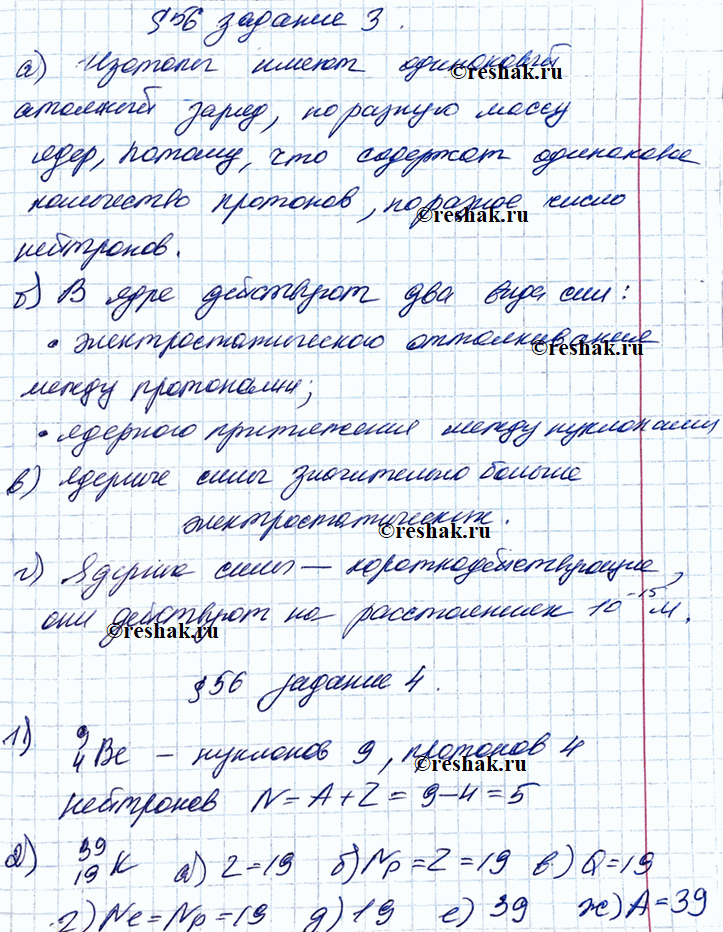 §56 задание 3.
а) Изотопы имеют одинаковый
©reshak.ru
атомный заряд, но разную массу
ядер, потому, что содержат одинаковое
количество протонов, но разное число
©reshak.ru
нейтронов.
б) В ядре действуют два вида сил:
• электростатического отталкивания
©reshak.ru
между протонами;
• ядерного притяжения между нуклонами
в) Ядерные силы значительно больше
электростатических.
©reshak.ru
г) Ядерные силы — короткодействующие,
они действуют на расстояниях 10⁻¹⁵ м.
©reshak.ru
§56 задание 4.
1) ⁹₄Be — нуклонов 9, протонов 4
©reshak.ru
нейтронов N = A + Z = 9 - 4 = 5
2) ³⁹₁₉K а) Z = 19 б) Np = Z = 19 в) Q = 19
г) Ne = Np = 19 д) 19 е) 39 ж) A = 39